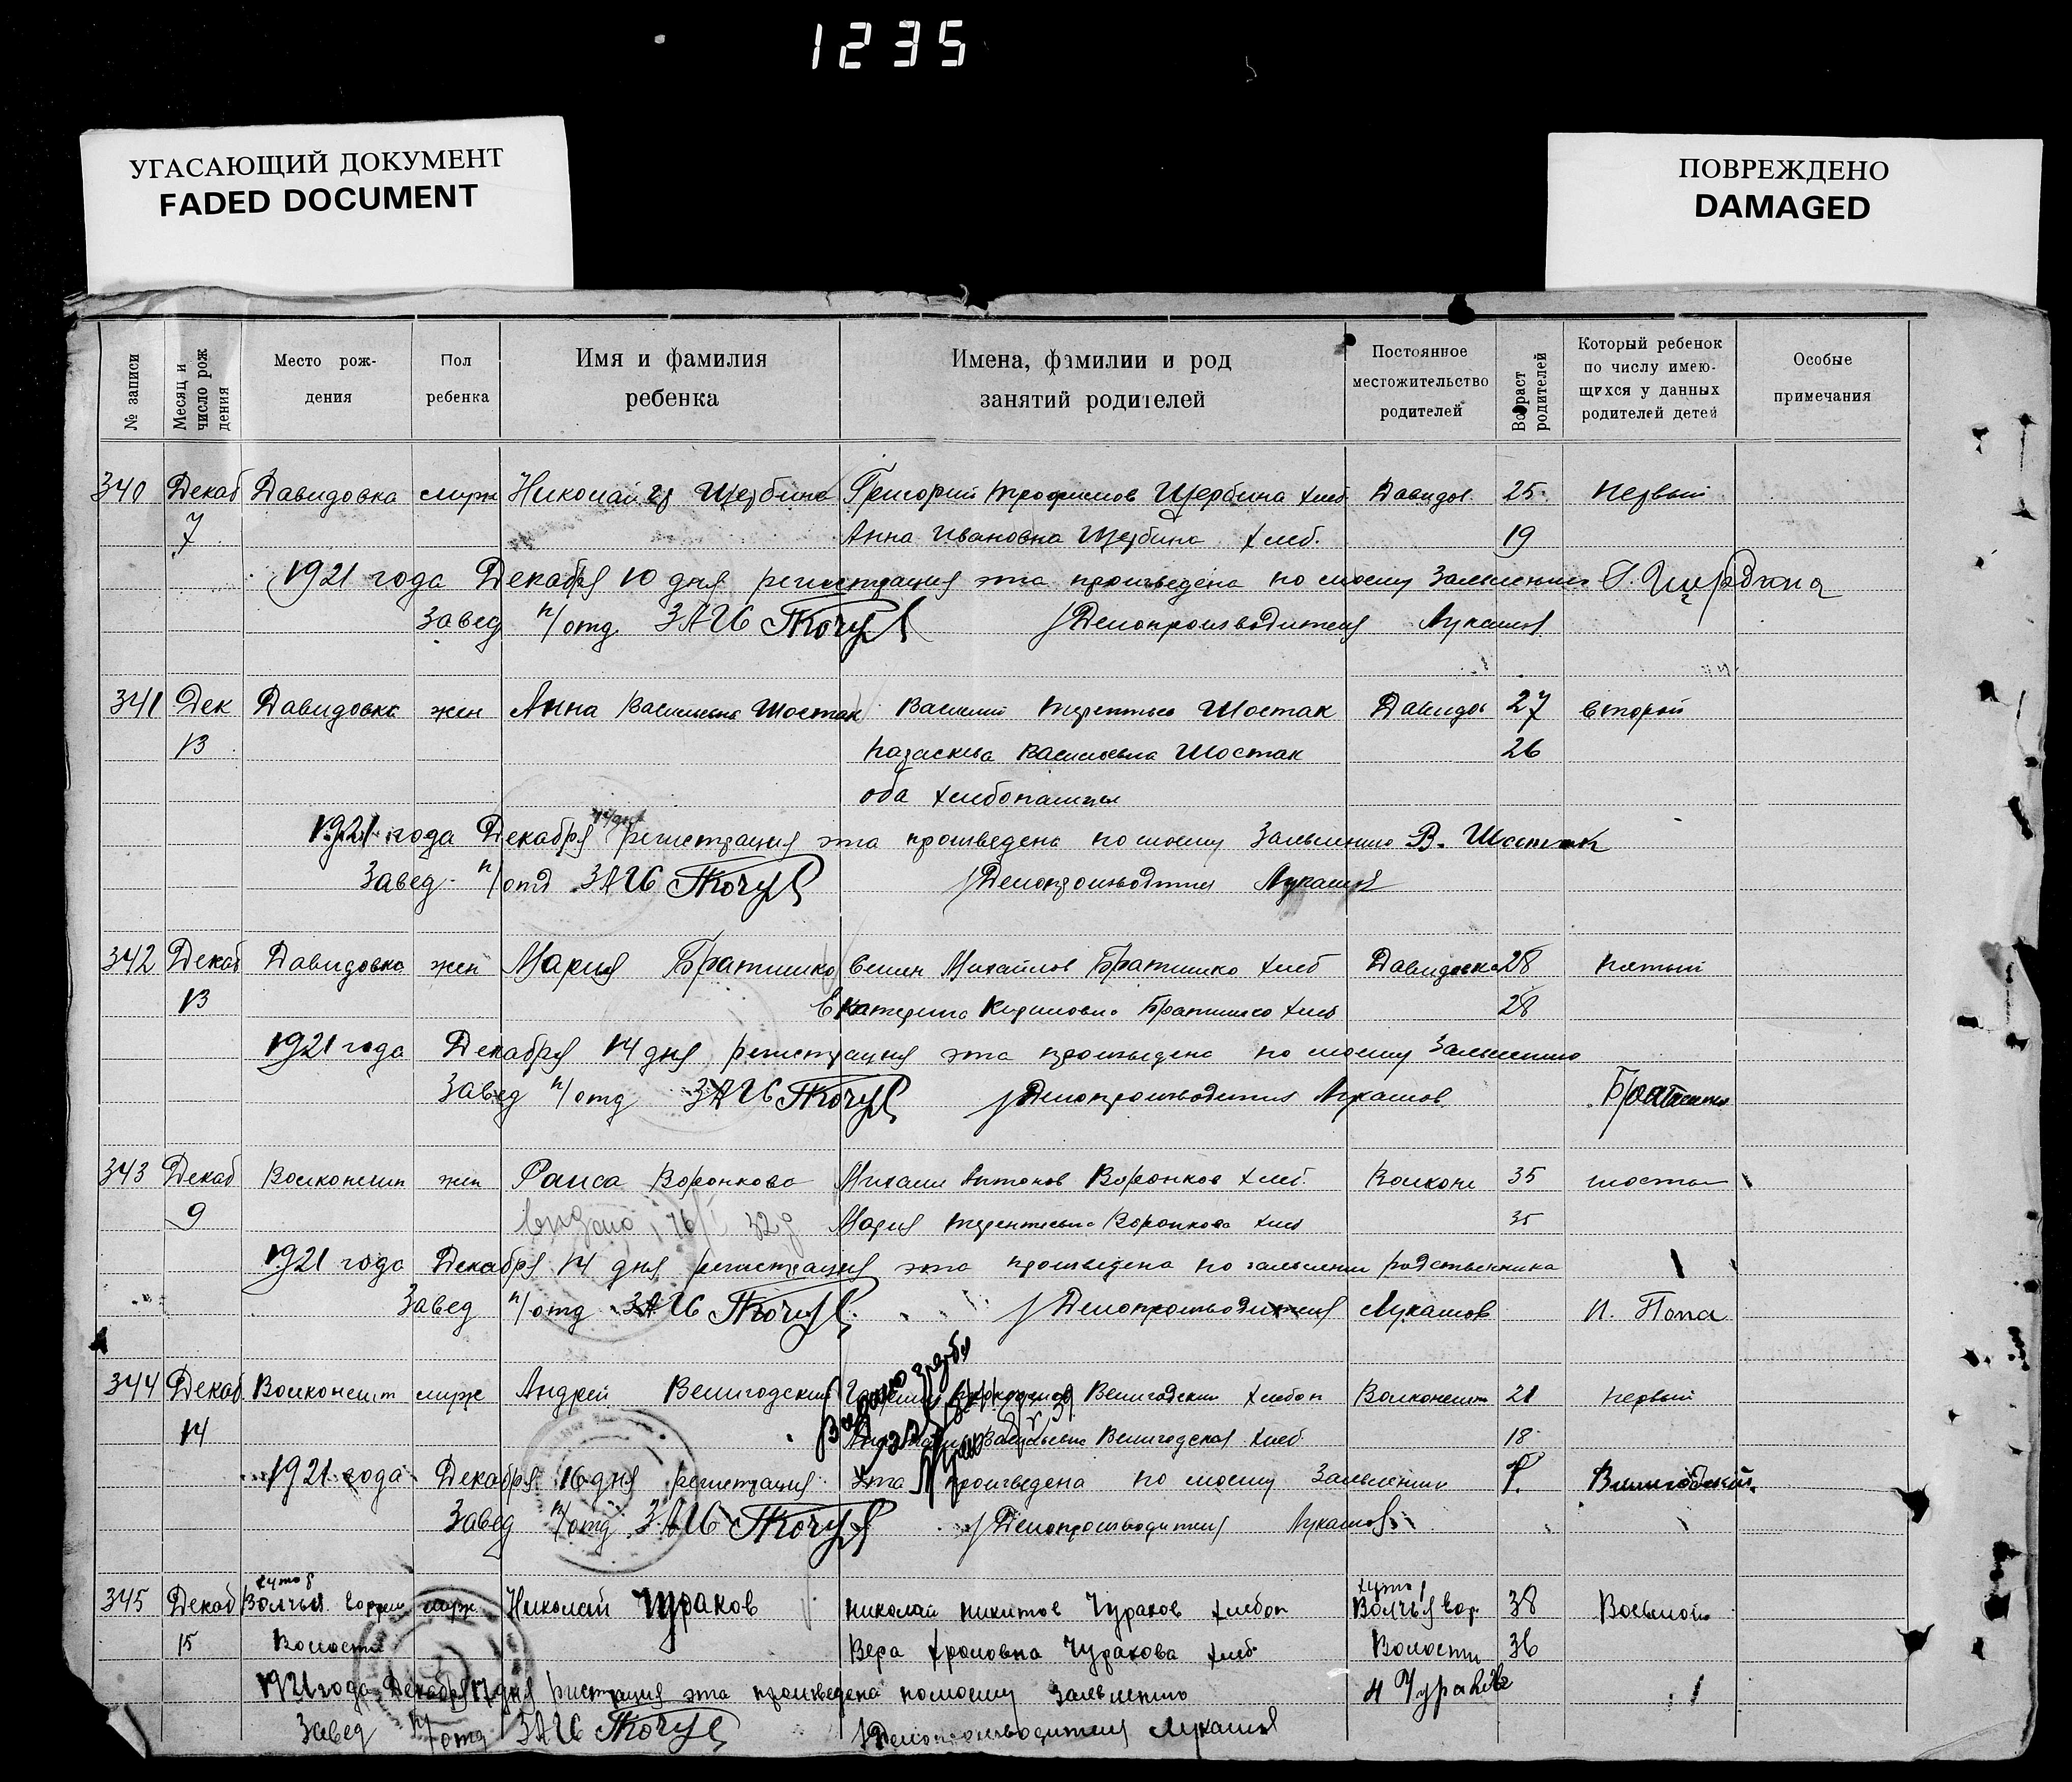 1235
УГАСАЮЩИЙ ДОКУМЕНТ
FADED DOCUMENT
ПОВРЕЖДЕНО
DAMAGED
№ записи
Месяц и число рождения
Место рождения
Пол ребенка
Имя и фамилия ребенка
Имена, фамилии и род занятий родителей
Постоянное местожительство родителей
Возраст родителей
Который ребенок по числу имеющихся у данных родителей детей
Особые примечания
340 Декаб Давидовка муж Николай Щербина Григорий Трофимов Щербина хлеб. Давидов. 25 первый
7 Анна Ивановна Щербина хлеб. 19
1921 года Декабря 10 дня регистрация эта произведена по моему Заявлению
Завед п/отд ЗАГС Делопроизводитель Лукашов
341 Дек Давидовка жен Анна Васильевна Шостак Василий Терентьев Шостак Давидов 27 второй
13 Параскева Васильевна Шостак 26
оба хлебопашцы
1921 года Декабря регистрация эта произведена по моему Заявлению В. Шостак
Завед п/отд ЗАГС Делопроизводитель Лукашов
342 Декаб Давидовка жен Мария Братишко Михайлов Братишко хлеб Давидовка 28 пятый
13 Екатерина Кириловна Братишко хлеб 28
1921 года Декабря 14 дня регистрация эта произведена по моему Заявлению
Завед п/отд ЗАГС Делопроизводитель Лукашов Братишко
343 Декаб жен Раиса Воронкова Михаил Антонов Воронков хлеб. 35
9 Мария Терентьевна Воронкова хлеб 35
1921 года Декабря 14 дня регистрация эта произведена по заявлению родственника
Завед п/отд ЗАГС Делопроизводитель Лукашов И. Попа
344 Декаб муж Андрей Велигодский Велигодский хлебоп 21 первый
14 Васильевна Велигодская хлеб. 18
1921 года Декабря 16 дня регистрация эта произведена по моему Заявлению Велигодский
Завед п/отд ЗАГС Делопроизводитель Лукашов
хутор хутор
345 Декаб Волчья муж Николай Чураков Николай Никитов Чураков хлебоп Волчья 38 Восьмой
15 Волости Вера Фроловна Чуракова хлеб. Волости 36
1921 года Декабря 17 дня эта произведена по моему заявлению Н Чураков
Завед п/отд ЗАГС Делопроизводитель Лукашов